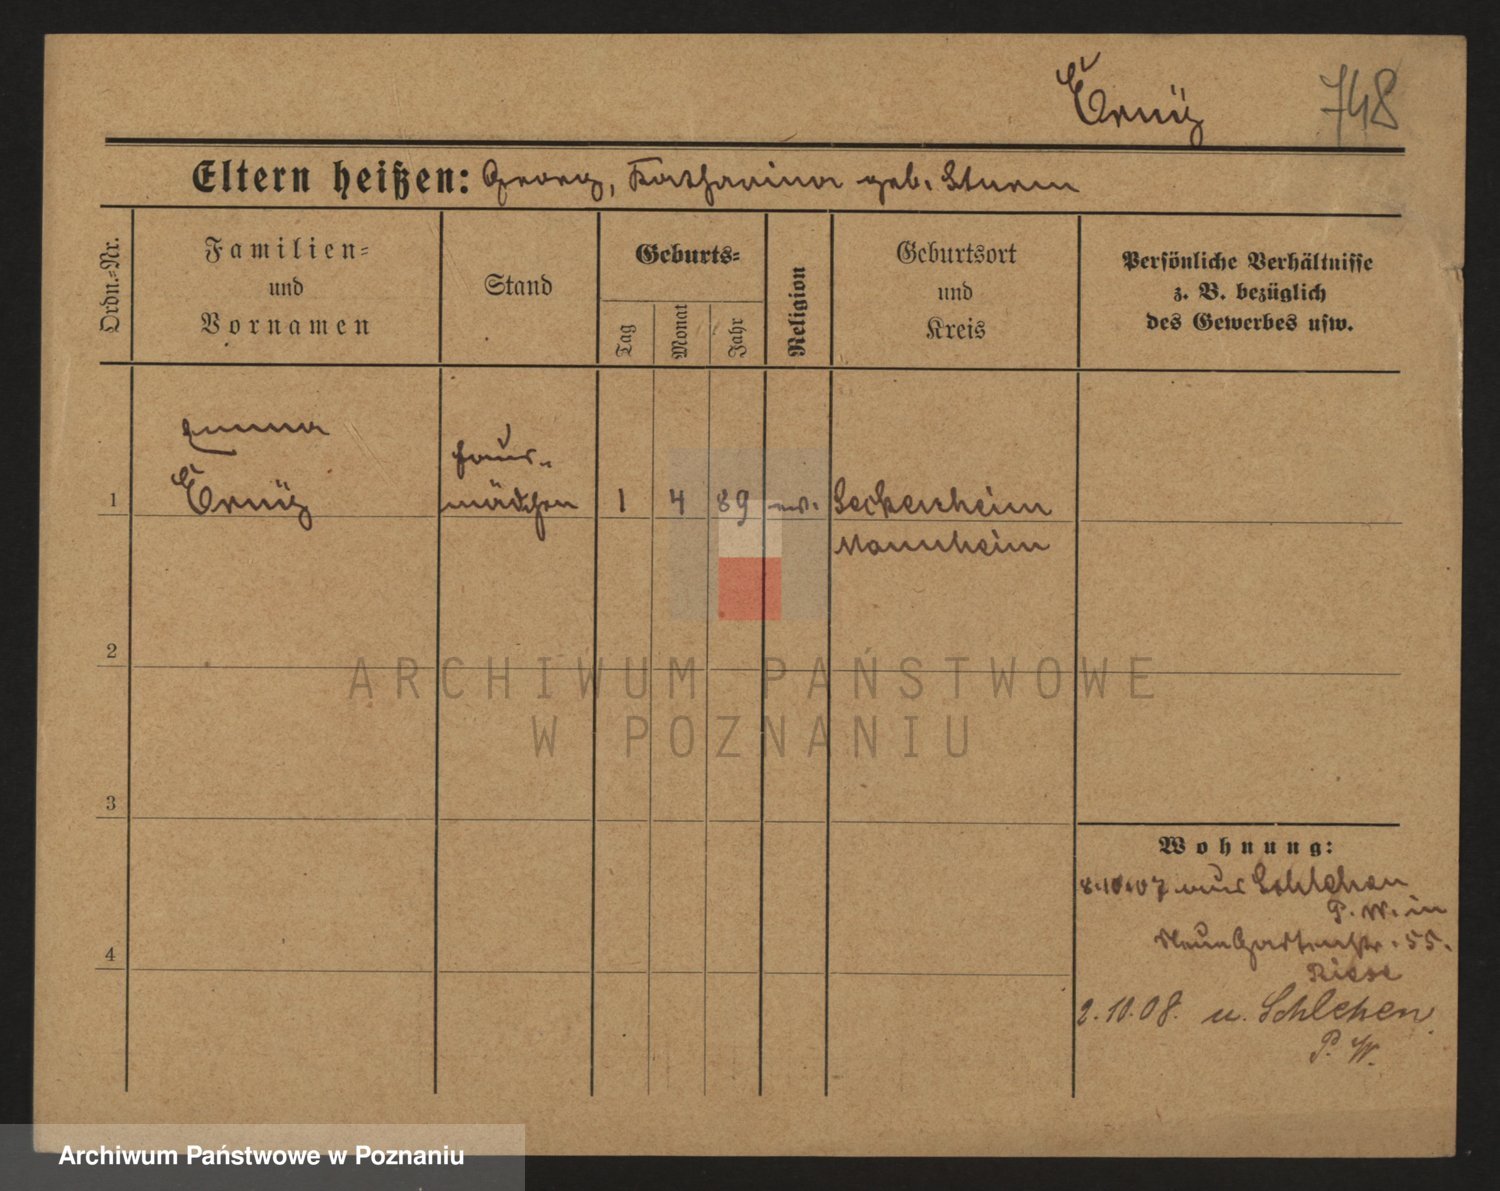 748
Eltern heißen: Georg, Katharina geb. Sturm
Ordn.-Nr.
Familien-
und
Vornamen
Stand
Geburts-
Tag
Monat
Jahr
Religion
Geburtsort
und
Kreis
Persönliche Verhältnisse
z. B. bezüglich
des Gewerbes usw.
Emma
Haus-
1 mädchen 1 4 89 Seckenheim
Mannheim
2
3
4
Wohnung:
8.10.07 aus Schlehen
P. W. in
Neue Gartenstr. 55.
Riese
2.10.08. n. Schlehen
P. W.
ARCHIWUM PAŃSTWOWE
W POZNANIU
Archiwum Państwowe w Poznaniu